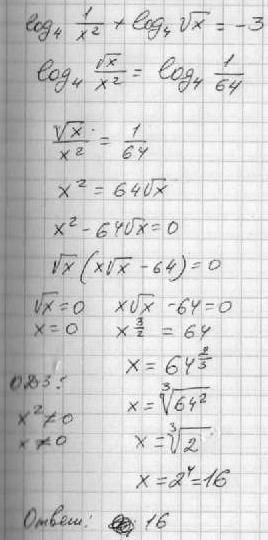 log₄ 1/x² + log₄ √x = -3
log₄ √x/x² = log₄ 1/64
√x/x² = 1/64
x² = 64√x
x² - 64√x = 0
√x (x√x - 64) = 0
√x = 0 x√x - 64 = 0
x = 0 x^(3/2) = 64
x = 64^(2/3)
ОДЗ:
x² ≠ 0
x ≠ 0
x = ∛64²
x = ∛2
x = 2⁴ = 16
Ответ: 16